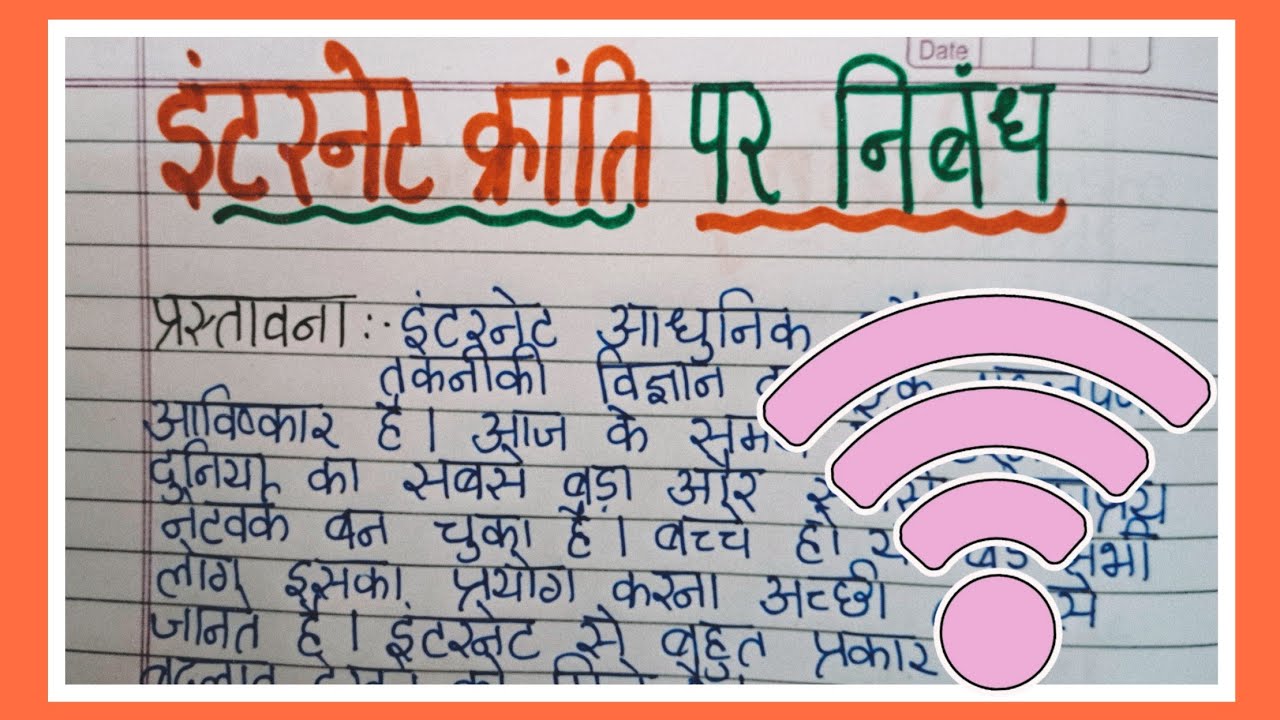 Date
इंटरनेट क्रांति पर निबंध
प्रस्तावना :- इंटरनेट आधुनिक
तकनीकी विज्ञान
आविष्कार है। आज के
दुनिया का सबसे बड़ा और
नेटवर्क बन चुका है। बच्चे हो
लोग इसका प्रयोग करना अच्छी से
जानते है। इंटरनेट से बहुत प्रकार